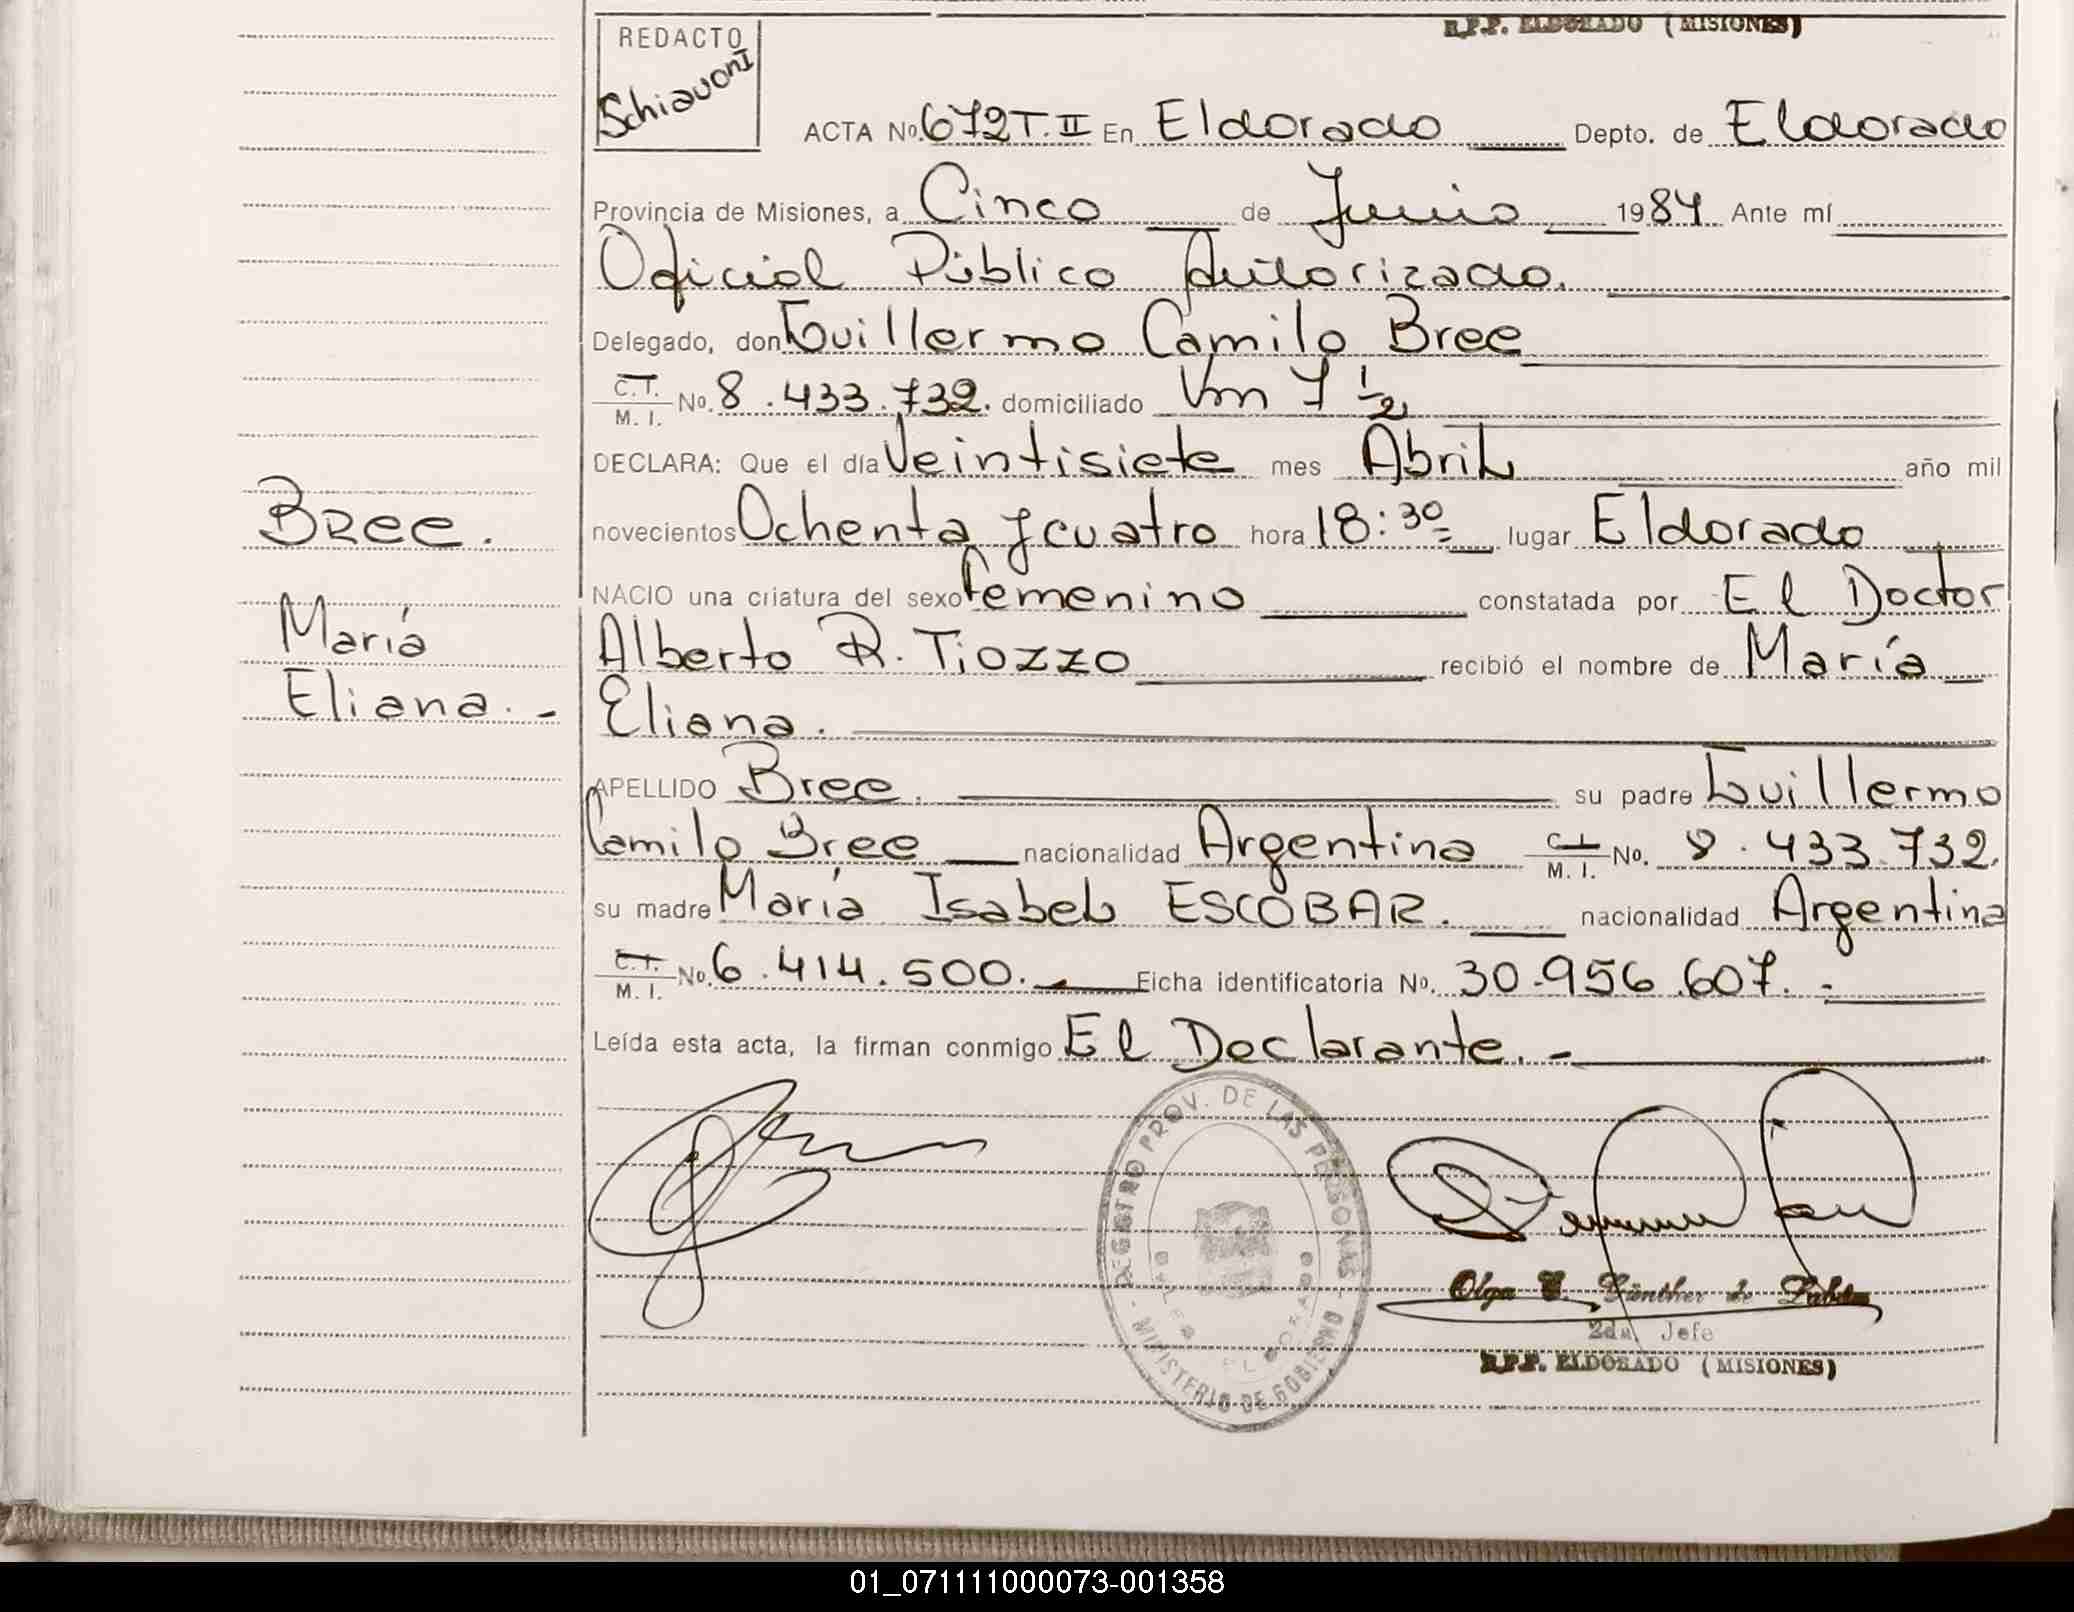 R.P.P. ELDORADO (MISIONES)
REDACTO
Schiavoni
ACTA Nº 672 T. II En Eldorado Depto. de Eldorado
Provincia de Misiones, a Cinco de Junio 1984 Ante mí
Oficial Público Autorizado.
Delegado, don Guillermo Camilo Bree
C.I. M. I. No. 8.433.732. domiciliado Km 7 1/2
DECLARA: Que el día Veintisiete mes Abril año mil
novecientos Ochenta y cuatro hora 18:30 lugar Eldorado
NACIO una criatura del sexo Femenino constatada por El Doctor
Alberto R. Tiozzo recibió el nombre de María
Eliana.
Bree.
María
Eliana. -
APELLIDO Bree. su padre Guillermo
Camilo Bree nacionalidad Argentina C.I. M. I. No. 8.433.732.
su madre María Isabel ESCOBAR. nacionalidad Argentina
C.I. M. I. No. 6.414.500. Ficha identificatoria No. 30.956.607. -
Leída esta acta, la firman conmigo El Declarante. -
REGISTRO PROV. DE LAS PERSONAS
- MINISTERIO DE GOBIERNO -
ELDORADO
Olga Günther de
2da. Jefe
R.P.P. ELDORADO (MISIONES)
01_071111000073-001358